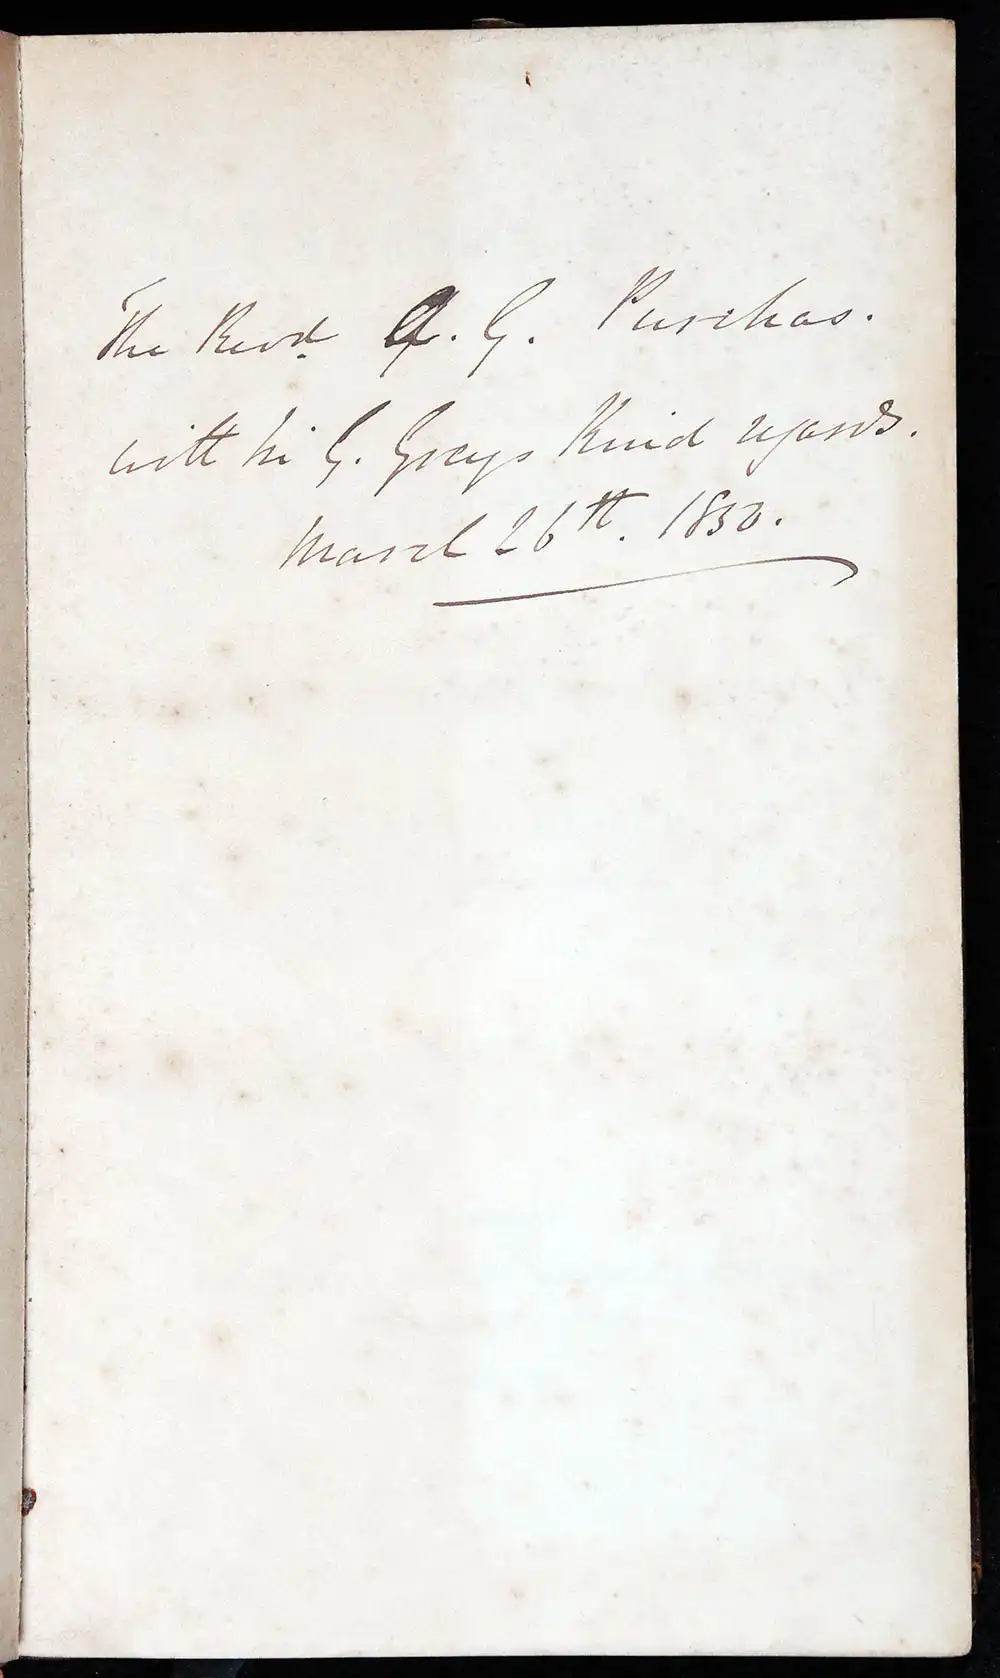 The Revd. A. G. Purchas.
with Sir G. Grey's Kind regards.
March 26th. 1850.